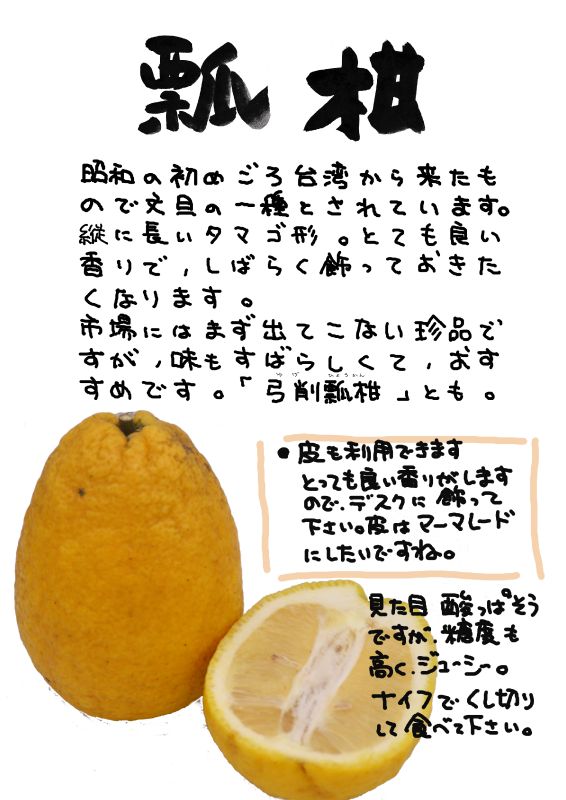 瓢柑
昭和の初めごろ台湾から来たも
ので文旦の一種とされています。
縦に長いタマゴ形。とても良い
香りで,しばらく飾っておきた
くなります。
市場にはまず出てこない珍品で
すが,味もすばらしくて,おす
すめです。「弓削瓢柑」とも。
ゆげ ひょうかん
●皮も利用できます
とっても良い香りがします
ので、デスクに飾って
下さい。皮はマーマレード
にしたいですね。
見た目 酸っぱそう
ですが、糖度も
高く、ジューシー。
ナイフでくし切り
して食べて下さい。